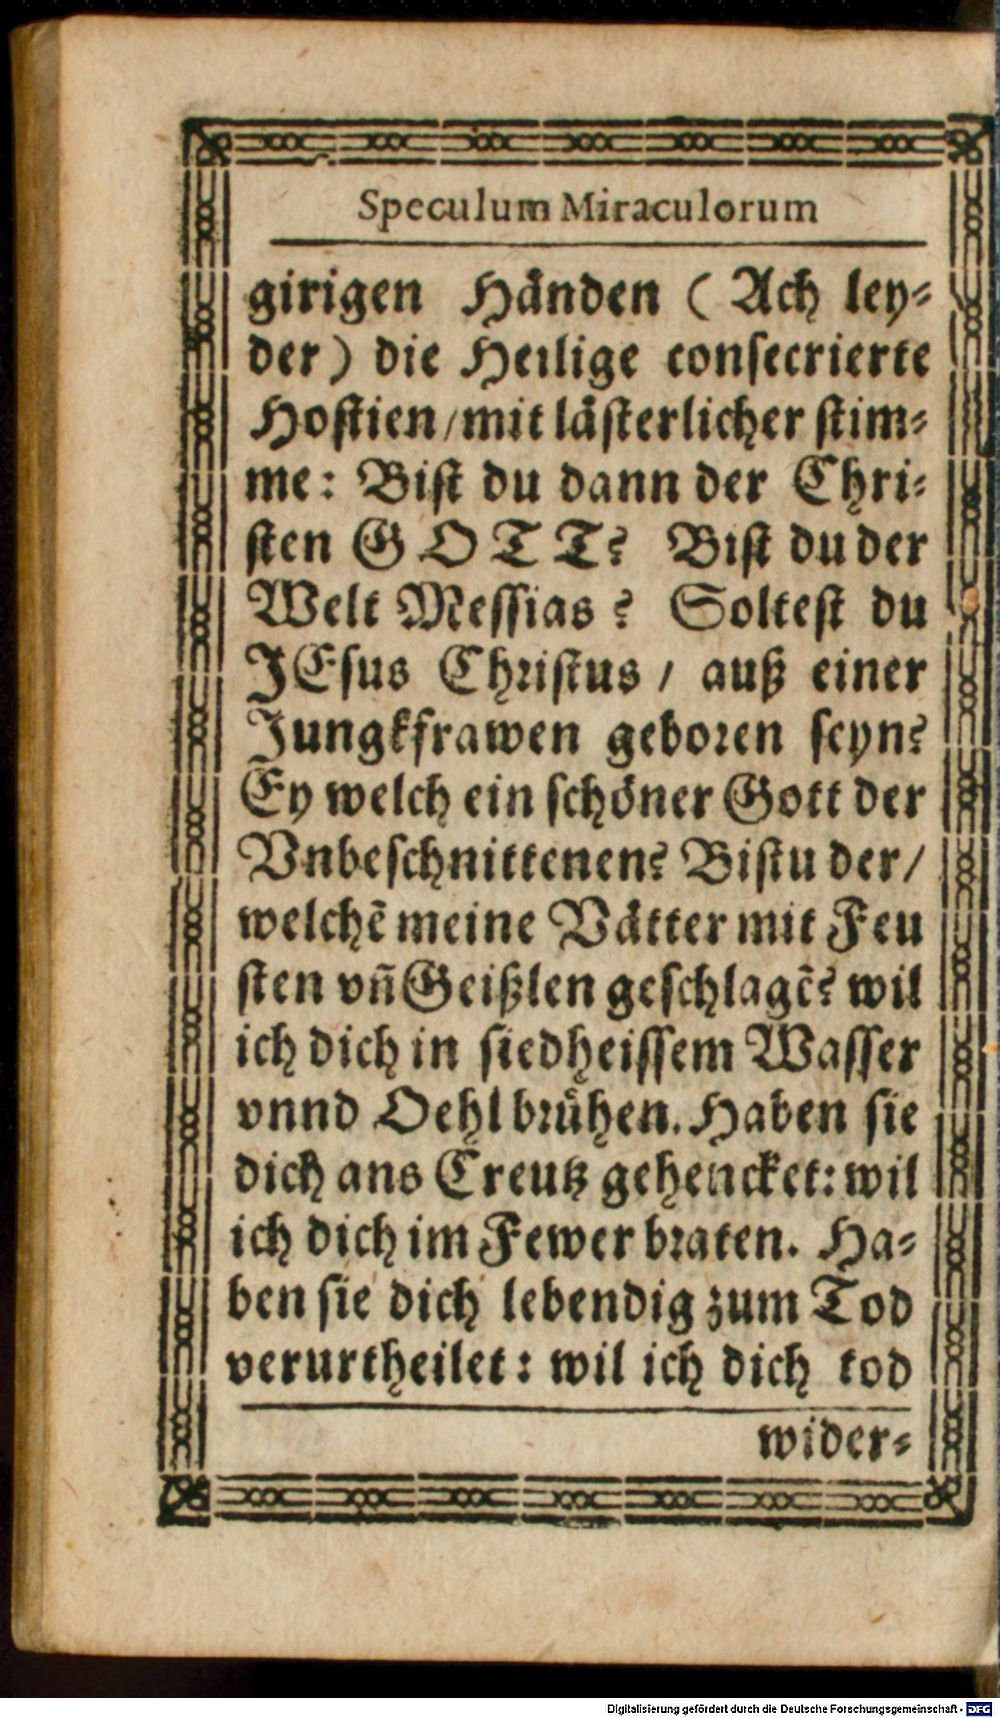 Speculum Miraculorum
girigen Händen (Ach ley⸗
der) die Heilige consecrierte
Hostien/mit lästerlicher stim⸗
me: Bist du dann der Chri⸗
sten GOTT? Bist du der
Welt Messias? Soltest du
JEsus Christus / auß einer
Jungkfrawen geboren seyn?
Ey welch ein schöner Gott der
Vnbeschnittenen? Bistu der/
welchẽ meine Vätter mit Feu
sten vñ Geißlen geschlagẽ? wil
ich dich in siedheissem Wasser
vnnd Oehl brühen. Haben sie
dich ans Creutz gehencket: wil
ich dich im Fewer braten. Ha⸗
ben sie dich lebendig zum Tod
verurtheilet: wil ich dich tod
wider⸗
Digitalisierung gefördert durch die Deutsche Forschungsgemeinschaft - DFG